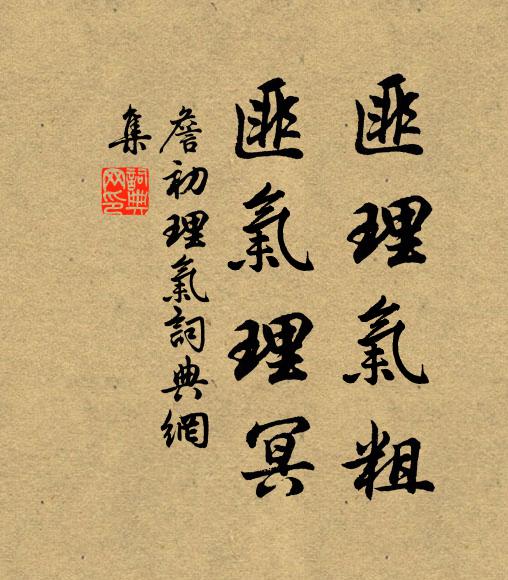 匪理氣粗
匪氣理冥
詹初理氣詞典網
集
詞典網印